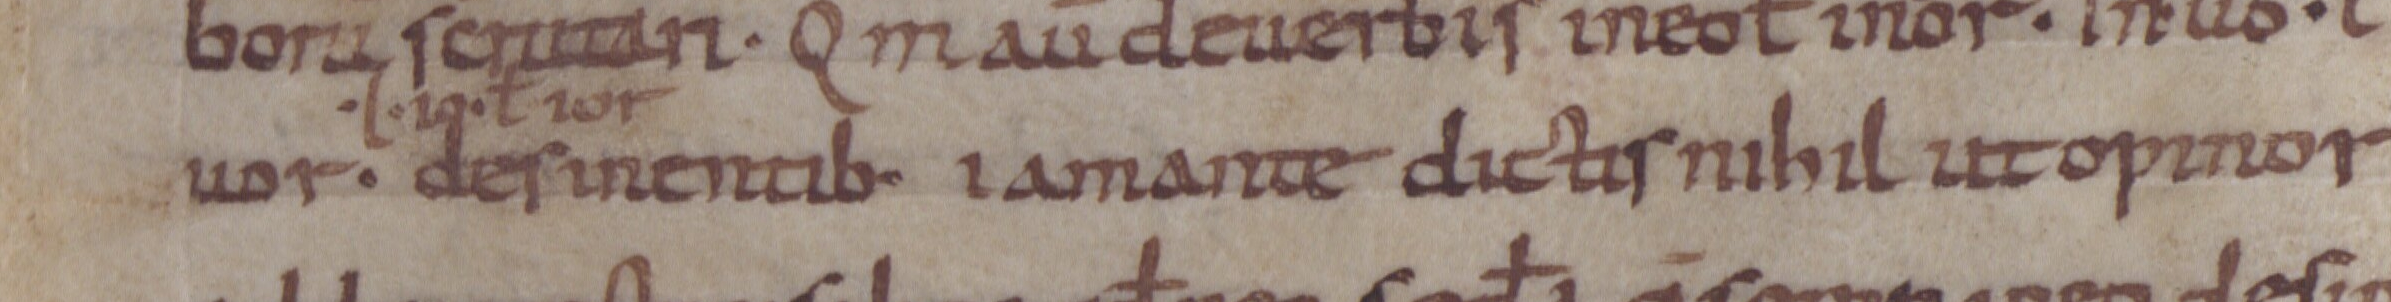 borū scrutari. Qm aū deuerbis ineo ł inor. In uo. ł
.l. ii. ł ior
uor. desinentib. iamante dictis nihil ut opinor